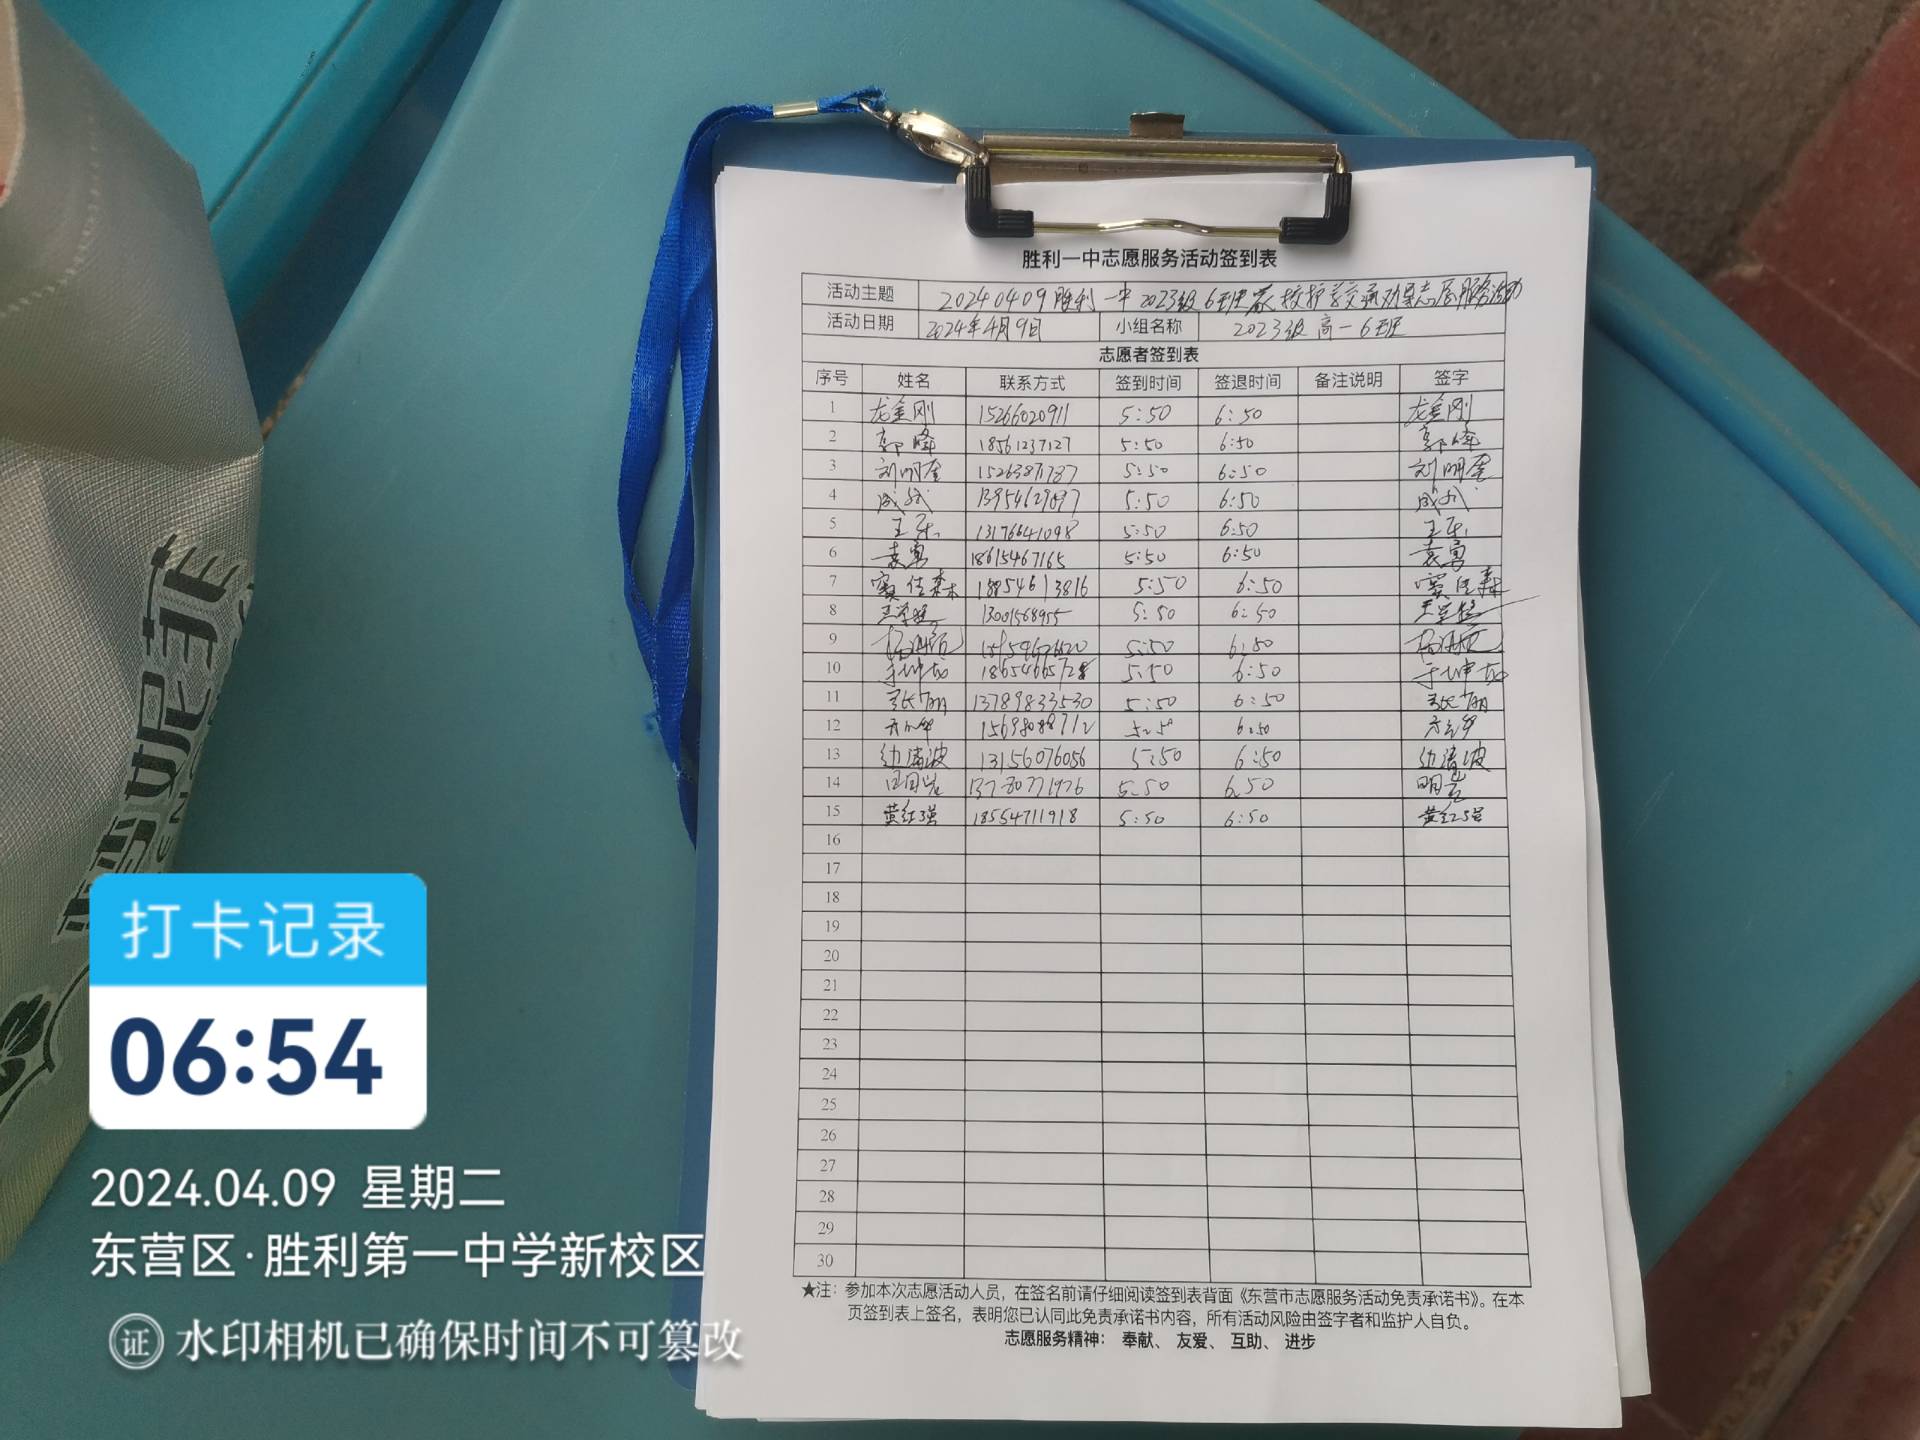 胜利一中志愿服务活动签到表
活动主题 20240409胜利一中2023级6班家校护学交通劝导志愿服务活动
活动日期 2024年4月9日 小组名称 2023级高一6班
志愿者签到表
序号 姓名 联系方式 签到时间 签退时间 备注说明 签字
1 龙金刚 15266020911 5:50 6:50 龙金刚
2 郭峰 18561237127 5:50 6:50 郭峰
3 刘明奎 5:50 6:50 刘明奎
4 成斌 5:50 6:50 成斌
5 王乐 13176641098 5:50 6:50 王乐
6 袁勇 18615467165 5:50 6:50 袁勇
7 窦佳森 18854613816 5:50 6:50 窦佳森
8 13001568955 5:50 6:50
9 5:50 6:50
10 5:50 6:50
11 13789833530 5:50 6:50
12 15698088712 5:50 6:50
13 边清波 13156076056 5:50 6:50 边清波
14 5:50 6:50
15 黄红强 18554711918 5:50 6:50 黄红强
16
17
18
19
20
21
22
23
24
25
26
27
28
29
30
★注：参加本次志愿活动人员，在签名前请仔细阅读签到表背面《东营市志愿服务活动免责承诺书》。在本
页签到表上签名，表明您已认同此免责承诺书内容，所有活动风险由签字者和监护人自负。
志愿服务精神： 奉献、 友爱、 互助、 进步
打卡记录
06:54
2024.04.09 星期二
东营区·胜利第一中学新校区
证 水印相机已确保时间不可篡改